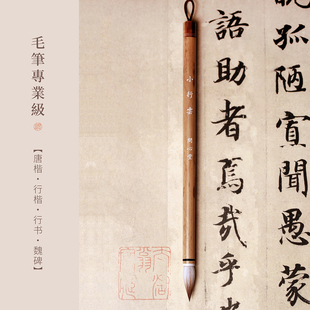 毛筆專業級
【唐楷·行楷·行书·魏碑】
小行
孤陋寡聞愚蒙
語助者焉哉乎也